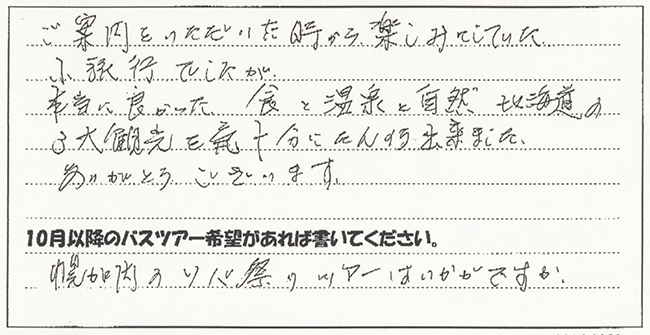 ご案内をいただいた時から楽しみにしていた
小旅行でしたが
本当に良かった 食と温泉と自然 北海道の
3大観光を充分にたんのう出来ました。
ありがとうございます。
10月以降のバスツアー希望があれば書いてください。
幌加内のソバ祭りツアーはいかがですか。